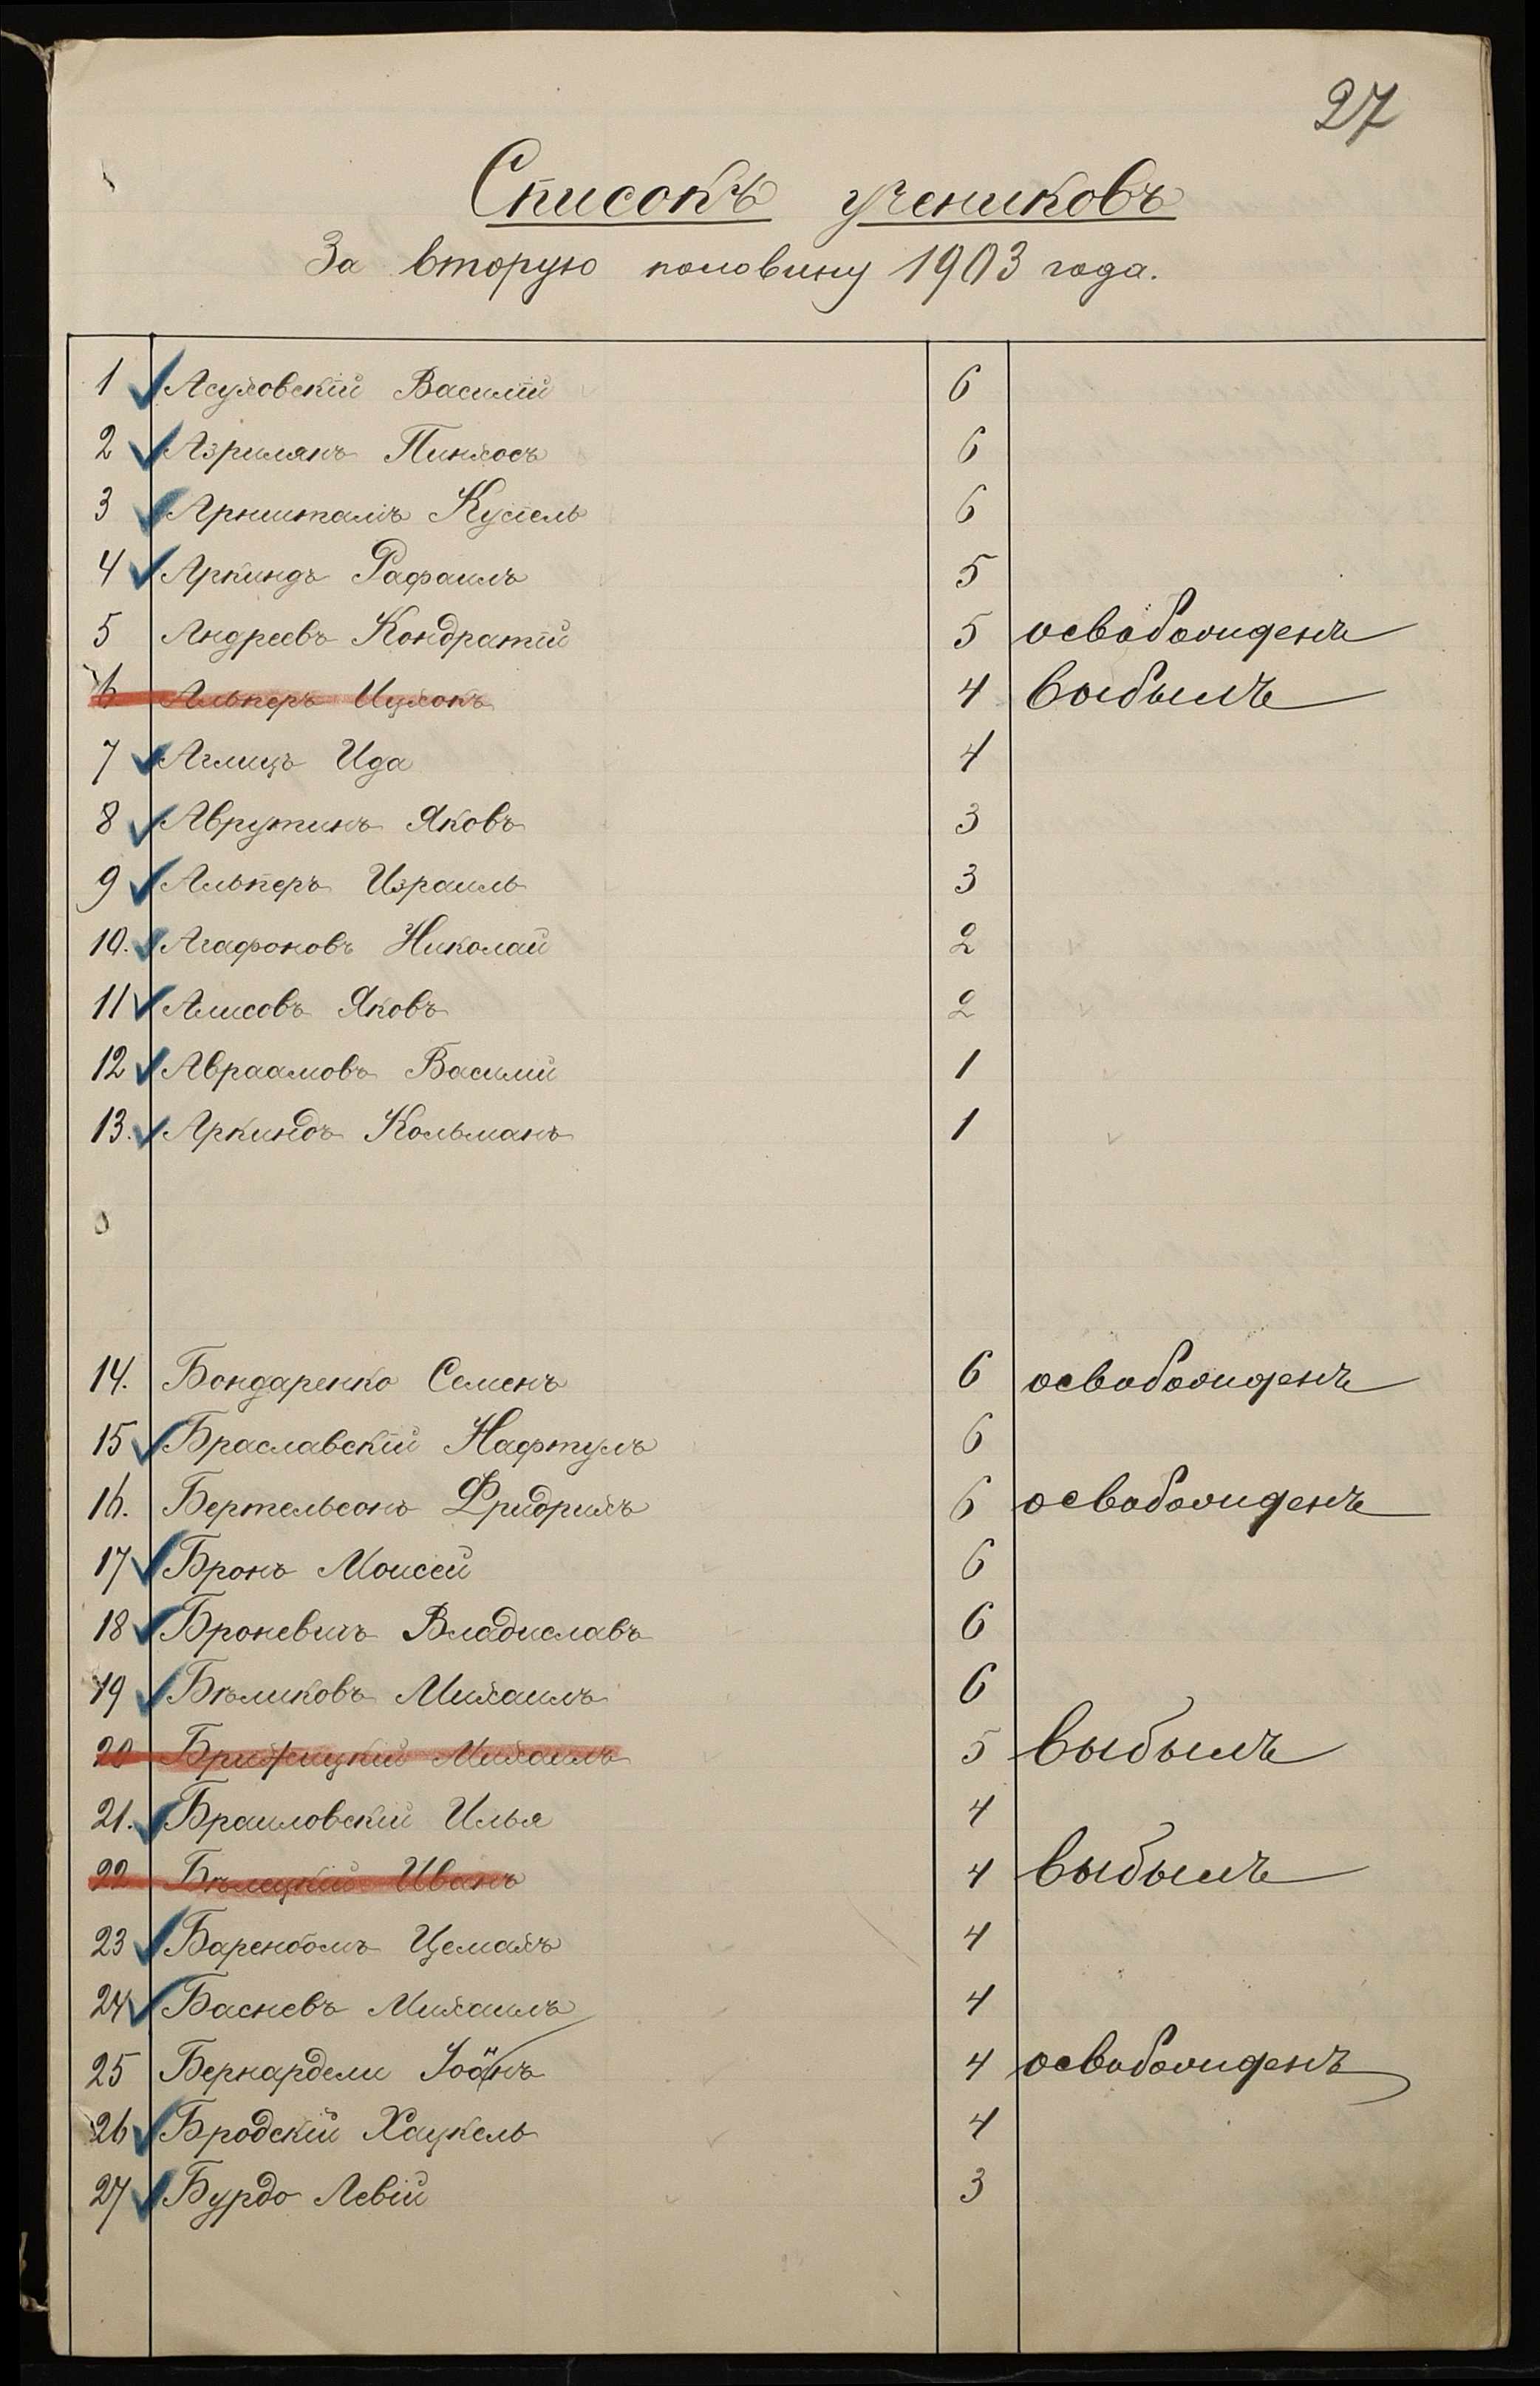 27
Списокъ учениковъ
За вторую половину 1903 года.
1 Асуховскій Василій 6
2 Азрилянъ Пинхосъ 6
3 Арнштамъ Кусіель 6
4 Аркиндъ Рафаилъ 5
5 Андреевъ Кондратій 5 освобожденъ
6 Альперъ Ицхокъ 4 выбылъ
7 Аглицъ Ида 4
8 Аврутинъ Яковъ 3
9 Альперъ Израиль 3
10. Агафоновъ Николай 2
11 Алисовъ Яковъ 2
12 Авраамовъ Василій 1
13. Аркиндъ Кальманъ 1
14. Бондаренко Семенъ 6 освобожденъ
15 Браславскій Нафтулъ 6
16. Бертельсонъ Фридрихъ 6 освобожденъ
17 Бронъ Моисей 6
18 Броневичъ Владиславъ 6
19 Бѣликовъ Михаилъ 6
20 Михаилъ 5 выбылъ
21. Браиловскій Илья 4
22 Бѣлецкій Иванъ 4 выбылъ
23 Баренбомъ Цемахъ 4
24 Басневъ Михаилъ 4
25 Бернардели Іоанъ 4 освобожденъ
26 Бродскій Хацкель 4
27 Бурдо Левій 3